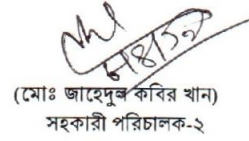 (মোঃ জাহেদুল কবির খান)
সহকারী পরিচালক-২